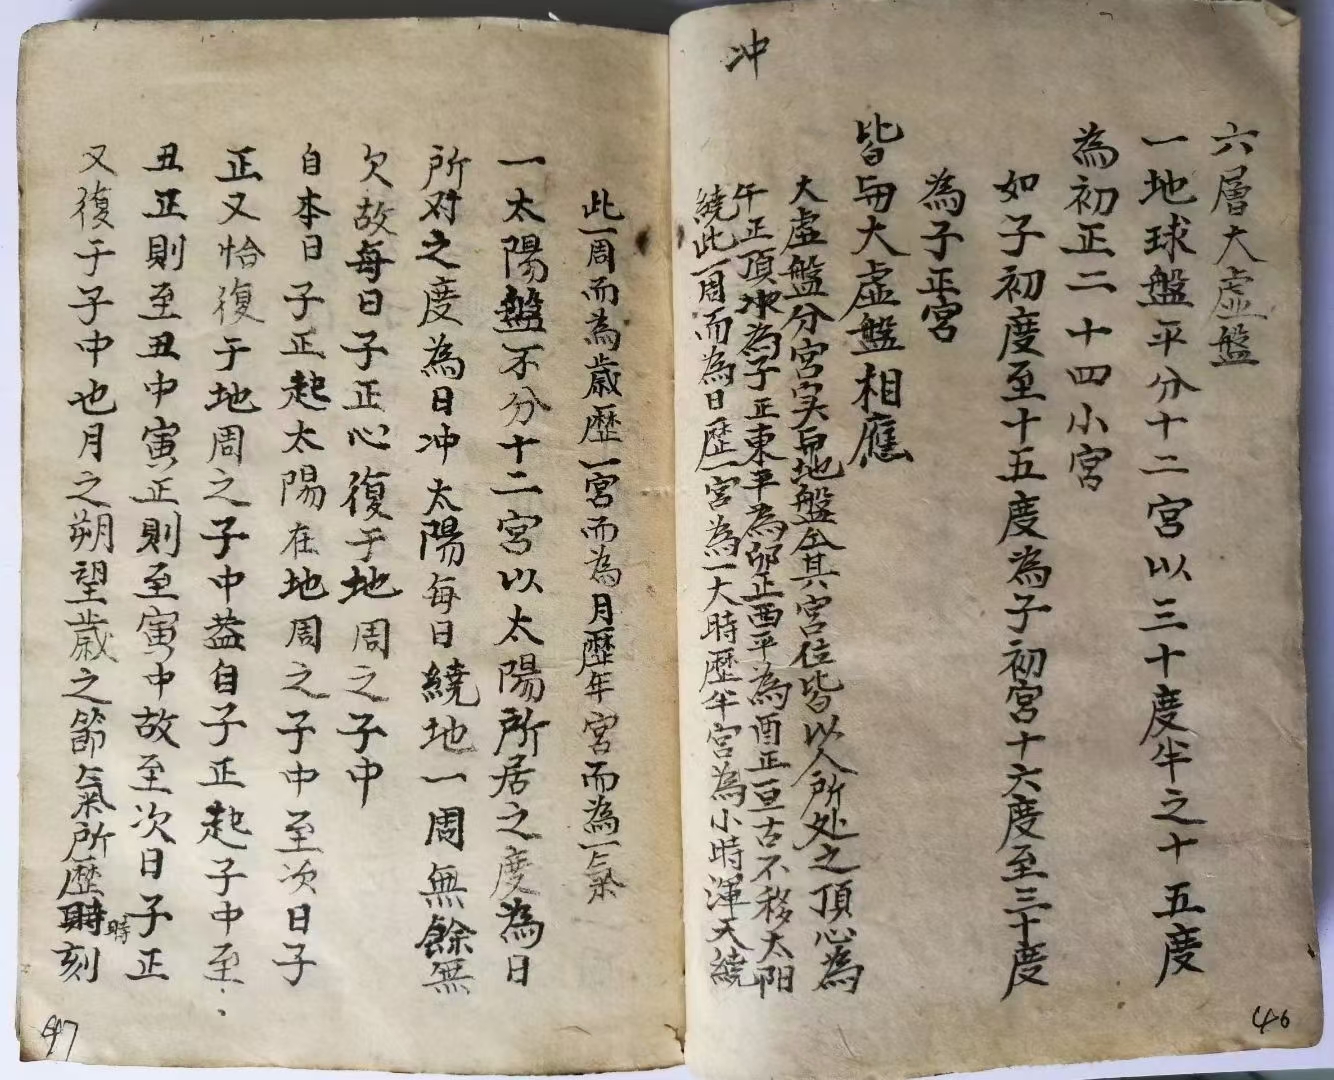 冲
六層大虛盤
一地球盤平分十二宮以三十度半之十五度
為初正二十四小宮
如子初度至十五度為子初宮十六度至三十度
為子正宮
皆與大虛盤相應
大虛盤分宮实與地盤仝其宮位皆以人所处之頂心為
午正頂冲為子正東平為卯正西平為酉正亘古不移太阳
繞此一周而為日歷一宮為一大時歷半宮為小時渾天繞
46
此一周而為歲歷一宮而為月歷年宮而為一氣
一太陽盤不分十二宮以太陽所居之度為日
所对之度為日冲太陽每日繞地一周無餘無
欠故每日子正心復于地周之子中
自本日子正起太陽在地周之子中至次日子
正又恰復于地周之子中葢自子正起子中至
丑正則至丑中寅正則至寅中故至次日子正
又復于子中也月之朔望歲之節氣所歷時刻
時
47